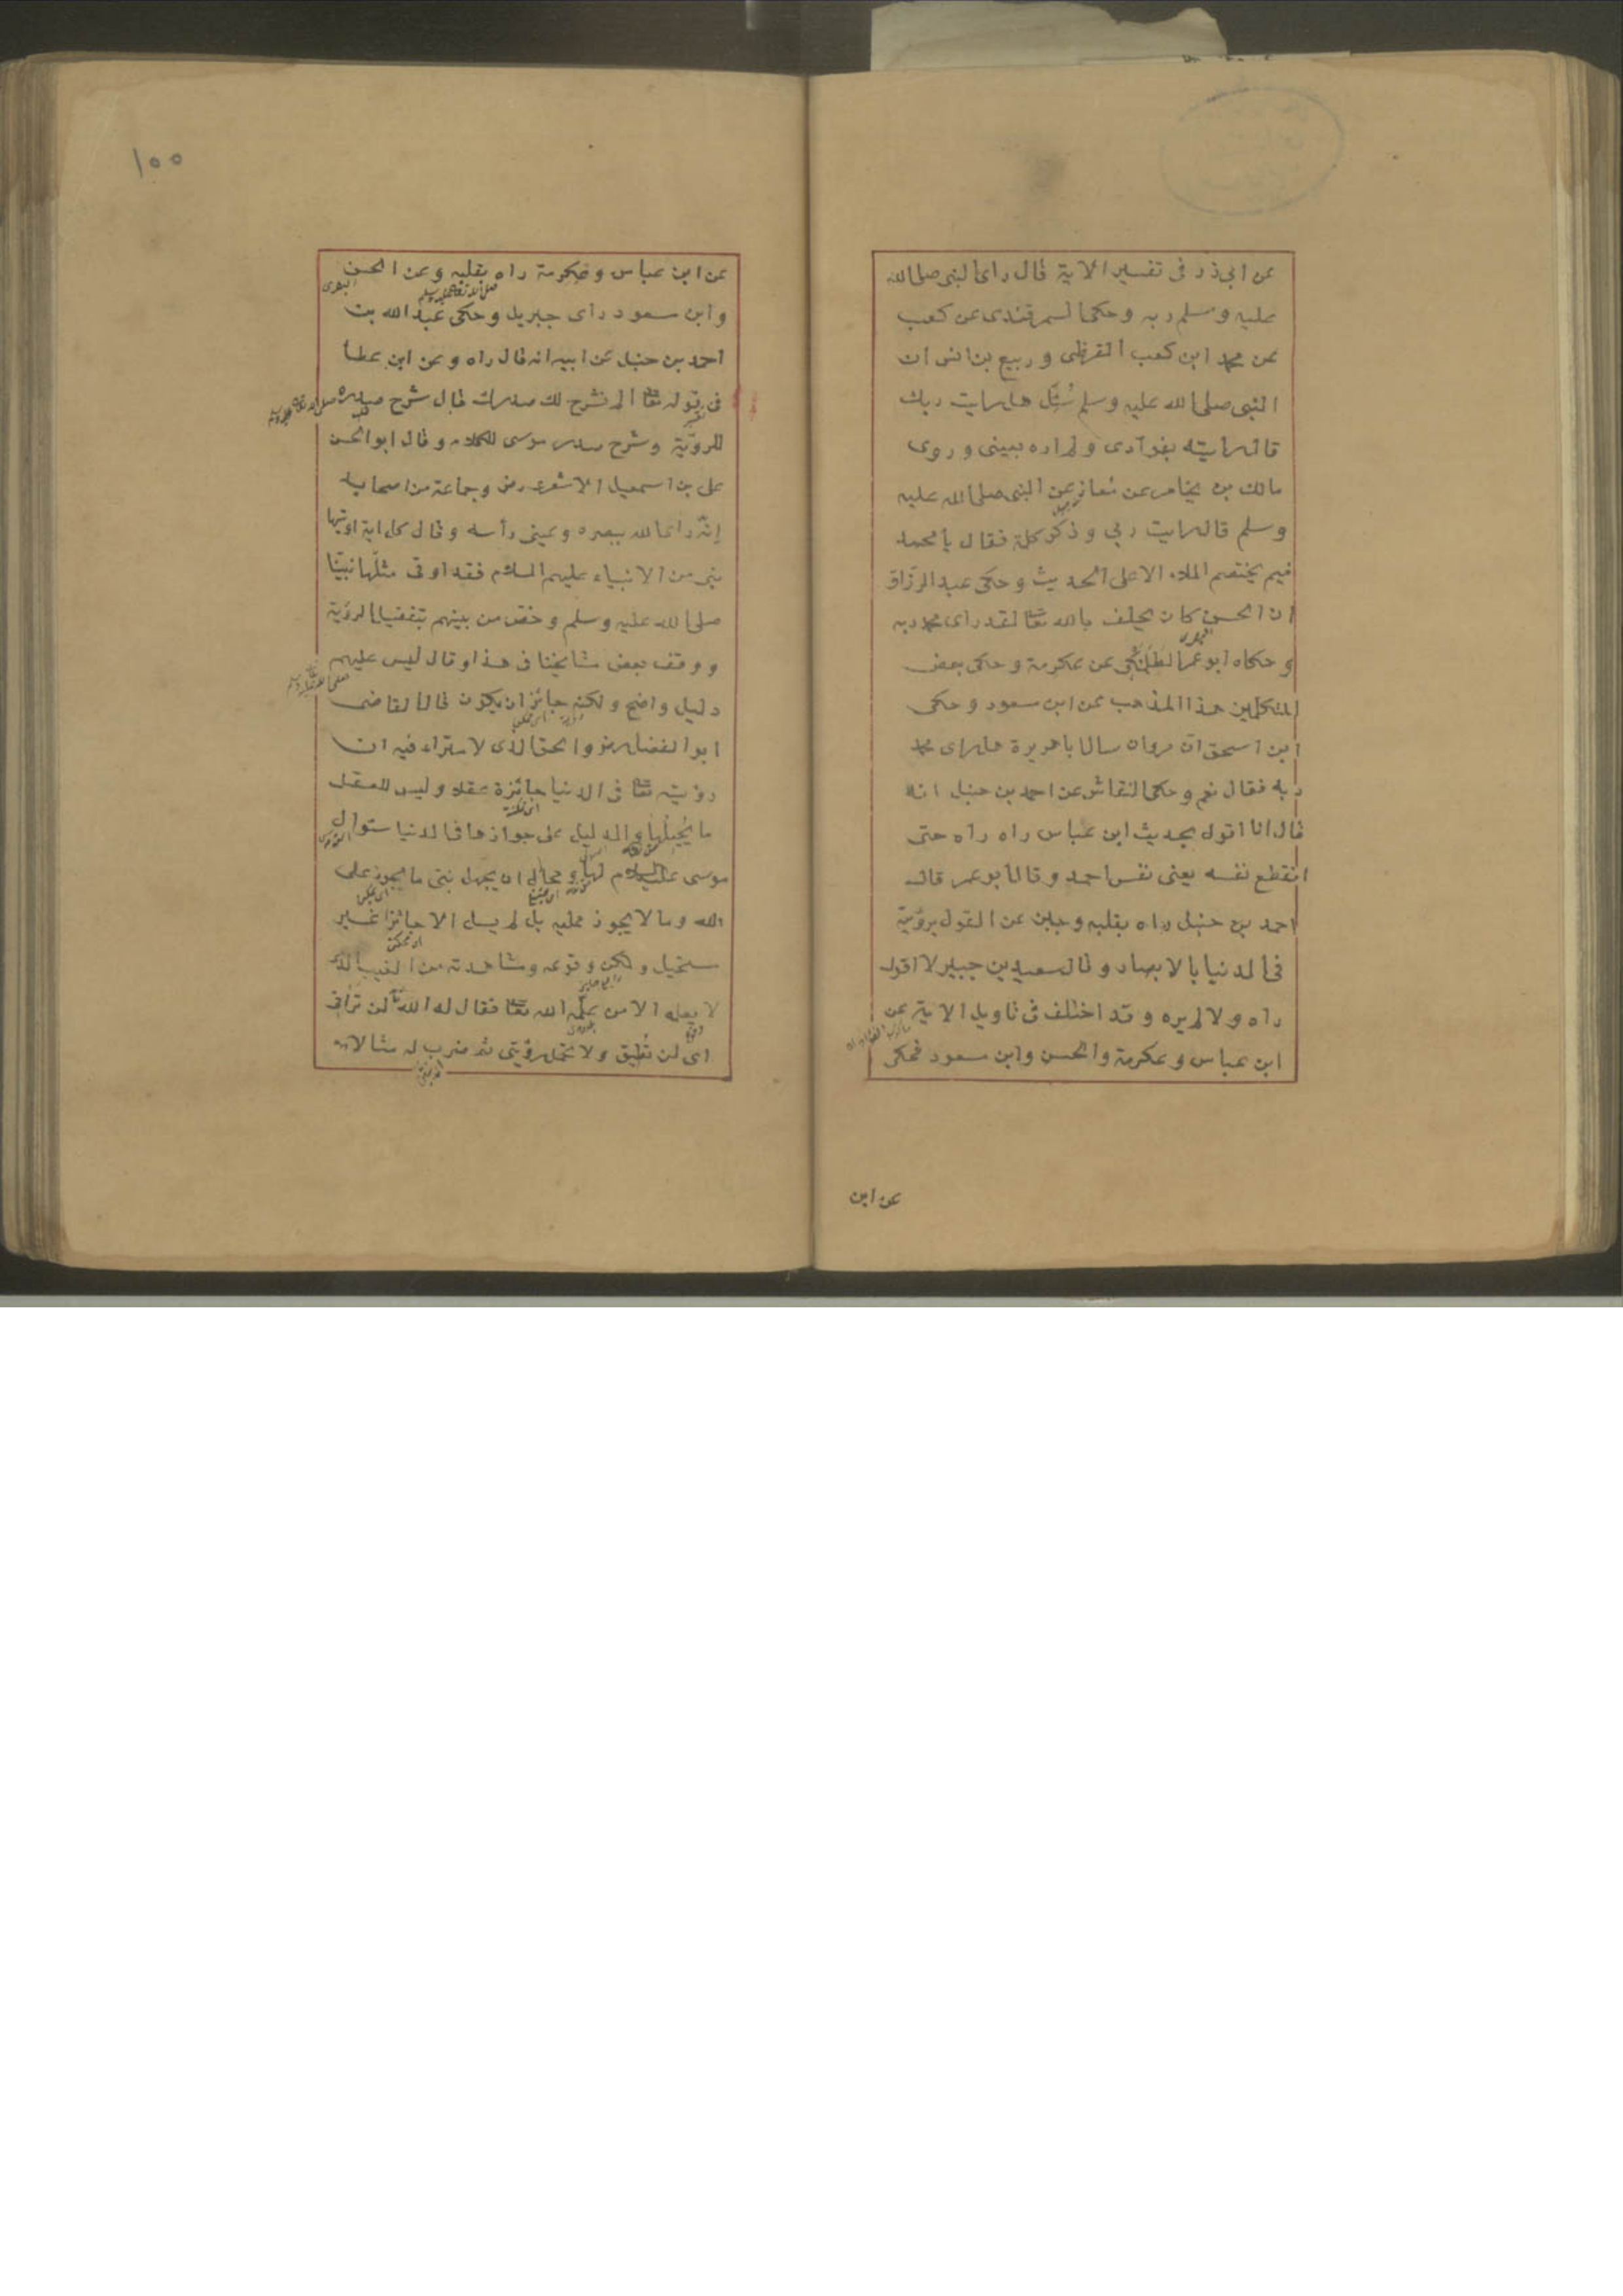 عن ابى ذر فى تفسير الاية قال راى النبى صلى الله
عليه وسلم ربه وحكى السمرقندى عن كعب
عن محمد ابن كعب القرظى وربيع بن انس ان
النبى صلى الله عليه وسلم سُئِل هل رايت ربك
قال رايته بفوادى ولم اره بعينى وروى
مالك بن يخامر عن معاذ عن النبى صلى الله عليه
وسلم قال رايت ربى وذكر كلمة فقال يا محمد
فيم يختصم الملاء الاعلى الحديث وحكى عبد الرزاق
ان الحسن كان يحلف بالله تعا لقد راى محمد ربه
وحكاه ابو عمر الطلمنكى عن عكرمة وحكى بعض
المتكلمين هذا المذهب عن ابن مسعود وحكى
ابن اسحق ان مروان سال ابا هريرة هل راى محمد
ربه فقال نعم وحكى النقاش عن احمد بن حنبل انه
قال انا اقول بحديث ابن عباس راه راه حتى
انقطع نفسه يعنى نفس احمد وقال ابو عمر قال
احمد بن حنبل راه بقلبه وجبن عن القول برؤية
فى الدنيا بالابصار وقال سعيد بن جبير لا اقول
راه ولا لم يره وقد اختلف فى تاويل الاية عن
ابن عباس وعكرمة والحسن وابن مسعود فحكى
عن ابن
١٠٠
عن ابن عباس وعكرمة راه بقلبه وعن الحسن
البصرى
صلى الله تعا عليه وسلم
وابن مسعود راى جبريل وحكى عبد الله بن
احمد بن حنبل عن ابيه انه قال راه وعن ابن عطا
فى قوله تعا الم نشرح لك صدرك قال شرح صدره صلى الله تعا عليه وسلم
للرؤية وشرح صدر موسى للكلام وقال ابو الحسن
على بن اسمعيل الاشعرى رض وجماعة من اصحابه
إنّه راى الله ببصره وعينى رأسه وقال كل اية اوتيها
نبى من الانبياء عليهم السلام فقد اوتى مثلها نبيّنا
صلى الله عليه وسلم وخص من بينهم بتفضيل الرؤية
ووقف بعض مشايخنا فى هذا وقال ليس عليهم
دليل واضح ولكنه جائز ان يكون قال القاضى
اى ممكن
ابو الفضل رض والحق الذى لا متراء فيه ان
رؤيته تعا فى الدنيا جائزة عقلا وليس للعقل
اى ممكنة
ما يُحِيلُها والدليل على جوازها فى الدنيا سئوال
موسى عليه السلام لها ومحال ان يجهل نبى ما يجوز على
اى ممتنع
اى يمكن
الله وما لا يجوز عليه بل لم يسل الا جائزا غير
اى ممكن
مستحيل ولكن وقوعه ومشاهدته من الغيب الذى
لا يعلمه الا من علّمه الله تعا فقال له الله تعا لن ترانى
اى لن تُطيق ولا تحتمل رؤيتى ثم ضرب له مثالا